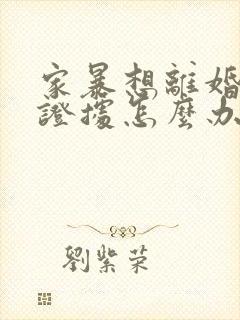 家暴想離婚
證據怎麼办
劉紫荣